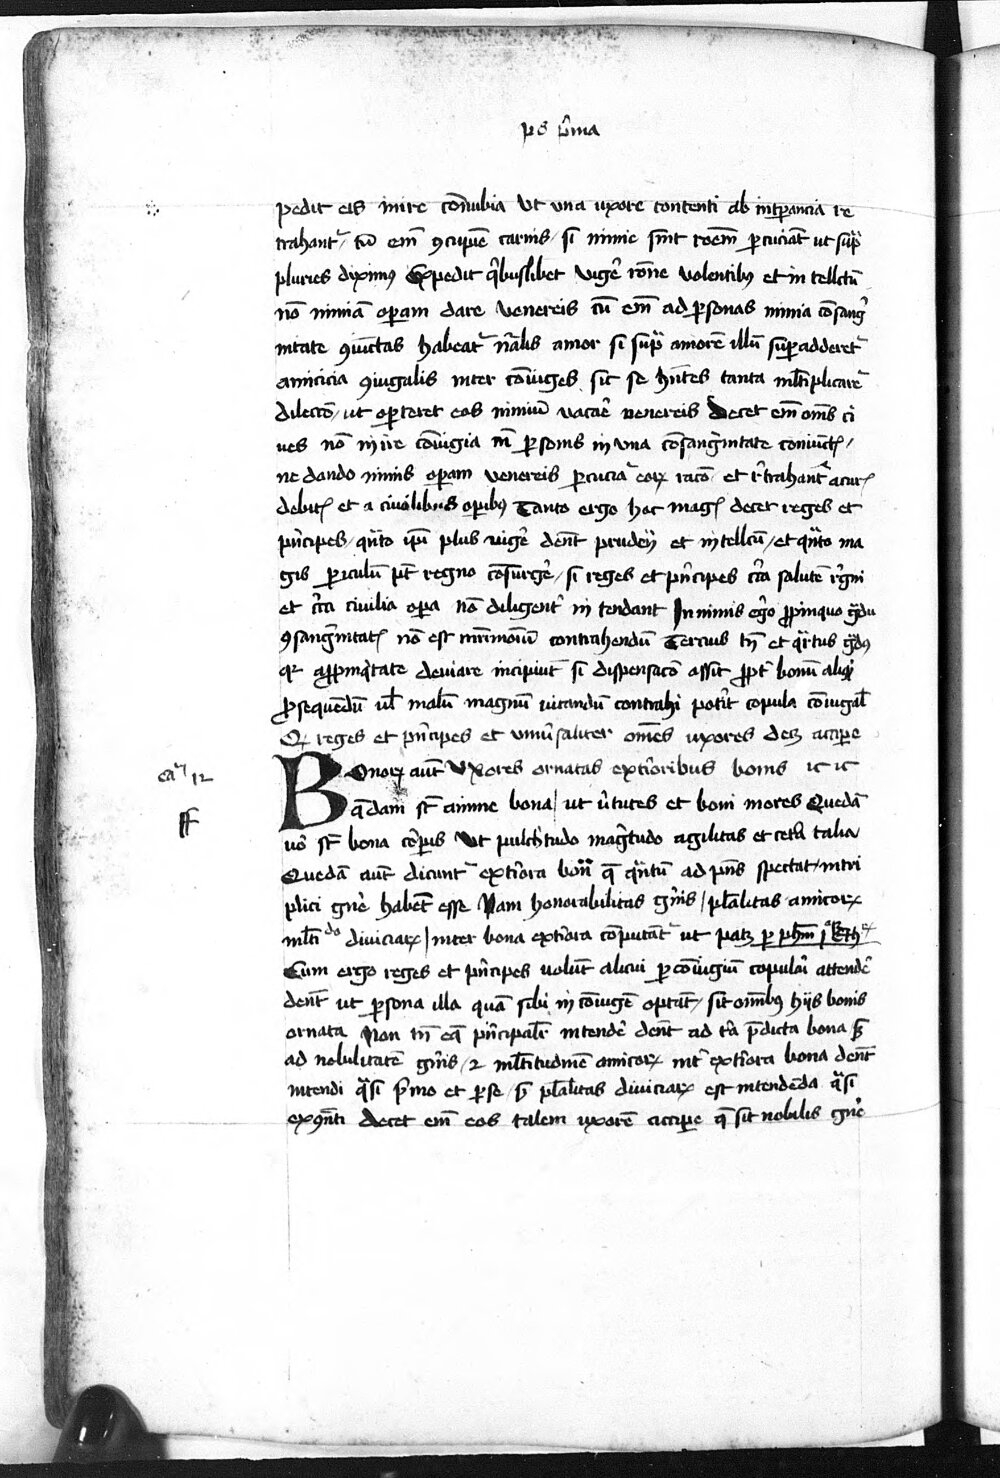 ps pͥma
pedit eis inire co̅nubia Ut una uxore contenti ab intp̱ancia re
trahant᷑ / tu̅ em̅ ꝯcupie̅ carnis / si nimie sint roe̅m ꝑcuciat ut sup͛
pluries diximꝰ Expedit qͥbuslibet uige᷑ ro̅ne volentibꝰ et intellctu̅
no̅ nimia̅ oꝑam dare venereis cu̅ em̅ ad ꝑsonas nimia co̅sang͛
initate ꝯiu̅ctas habeat᷑ nᷓalis amor si sup͛ amore̅ illu̅ suꝑadderet᷑
amicicia ꝯiugalis inter co̅iuges sic se hn̅tes tanta ml̅tiplicare᷑
dilecco̅ / ut oꝑteret eos nimiu̅ vaca᷑e venereis Decet em̅ om̅s ci
ues no̅ inire co̅iugia cu̅ ꝑsonis in una co̅sang͛initate coniunct̛ /
ne dando nimis oꝑam venereis ꝑcucia᷑ eoꝝ raco̅ et r͛trahant᷑ a cur̛
debit̛ et a ciuilibus oꝑibꝰ Tanto ergo hoc mag̛ decet reges et
pn͛cipes / qᷓnto ip̅i plus uige᷑ de̅nt prude̅ꝉ et intellcu̅ / et qᷓnto ma
gis ꝑiculu̅ pt̅ regno co̅surge᷑ / si reges et pn͛cipes cͥca salute̅ r͛gni
et cͥca ciuilia oꝑa no̅ diligent᷑ intendant In nimis e͛go ꝓpinquo gᷓdu
ꝯsang͛initat̛ no̅ est mr̅imoiu̅ contrahendu̅ Tercius tn̅ et qᷓrtus gᷓdꝰ
qꝛ a ꝓpinqͥtate deuiare incipiut̅ si dispensaco̅ assit ꝓpt᷑ bonu̅ aliqͩ
ꝓsequendu̅ ul̅ malu̅ magnu̅ uitandu̅ contrahi poterit copula co̅iugal̛
Qꝛ reges et pn͛cipes et uniu͛saliter om̅es uxores deꝫ accipe
caᷓ 12
Bonoꝝ aut̅ Uxores ornatas exte͛oribus bonis ic ic
qᷓdam st̅ anime bona / ut u͛tutes et boni mores Queda̅
uo͛ st̅ bona co͛pus Ut pulchͥtudo magͥtudo agilitas et cet͛a talia
Queda̅ aut̅ dicunt᷑ exte͛ora bonᷓ qᷓ qᷓntu̅ ad pn̅s spectat / in tri
plici gn͛e habe̅t esse Nam honorabilitas gn͛is / pl͛alitas amicoꝝ
ml̅tido diuiciaꝝ / inter bona exte͛ora co̅putant᷑ ut patꝫ ꝑ ph̅m j͛ Reth̛
Cum ergo reges et pn͛cipes uolu̅t alicui ꝑ co̅iugiu̅ copula᷑i attende᷑
den̅t ut ꝑsona illa qua̅ sibi in co̅iuge̅ opta̅t / sit om̅ibꝰ hijs bonis
ornata Non tn̅ eqᷓ pn͛cipalr᷑ intende᷑ den̅t ad tᷓa p̅dicta bona s̅
ad nobilitate̅ gn͛is / ⁊ ml̅titudine̅ amicoꝝ int᷑ exte͛ora bona den̅t
intendi qᷓsi pͥmo et ꝑ se / s̅ pl͛alitas diuiciaꝝ est intende̅da qᷓsi
ex ꝯn̅ti Decet em̅ eos talem uxore̅ acciꝑe qᷓ sit nobilis gn͛e